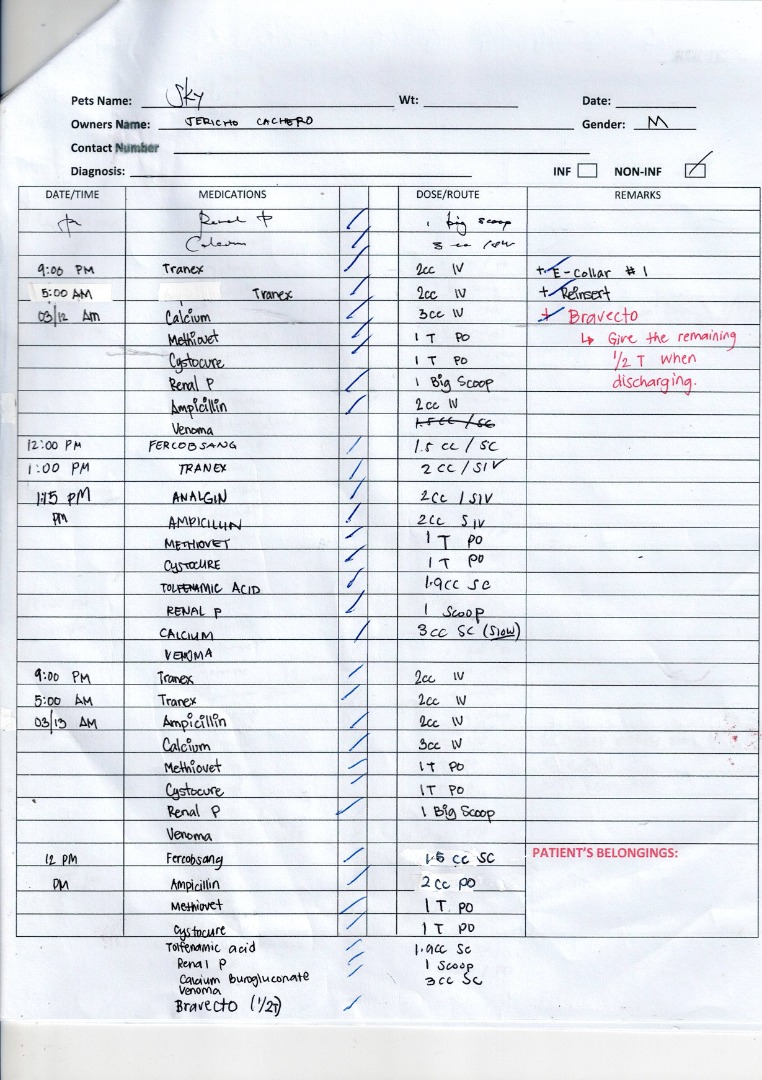 Pets Name: Sky Wt: Date:
Owners Name: JERICHO CACHERO Gender: M
Contact Number
Diagnosis: INF NON-INF
DATE/TIME MEDICATIONS DOSE/ROUTE REMARKS
Renal P 1 big scoop
Calcium 3 cc
9:00 PM Tranex 2cc IV + E-Collar #1
5:00 AM Tranex 2cc IV + Reinsert
03/12 Am Calcium 3cc IV + Bravecto
Methiovet 1 T PO ↳ Give the remaining
Cystocure 1 T PO 1/2 T when
Renal P 1 Big Scoop discharging.
Ampicillin 2cc IV
Venoma 1.5 CC / SC
12:00 PM FERCOBSANG 1.5 cc / SC
1:00 PM TRANEX 2 CC / SIV
1:15 PM ANALGIN 2CC / SIV
PM AMPICILLIN 2CC SIV
METHIOVET 1 T PO
CYSTOCURE 1 T PO
TOLFENAMIC ACID 1.9cc SC
RENAL P 1 Scoop
CALCIUM 3cc SC (Slow)
VENOMA
9:00 PM Tranex 2cc IV
5:00 AM Tranex 2cc IV
03/13 AM Ampicillin 2cc IV
Calcium 3cc IV
Methiovet 1T PO
Cystocure 1T PO
Renal P 1 Big Scoop
Venoma
12 PM Fercobsang 1.5 cc SC PATIENT'S BELONGINGS:
PM Ampicillin 2 cc PO
Methiovet 1 T PO
Cystocure 1 T PO
Tolfenamic acid 1.9cc SC
Renal P 1 Scoop
Calcium burogluconate 3cc SC
Venoma
Bravecto (1/2T)